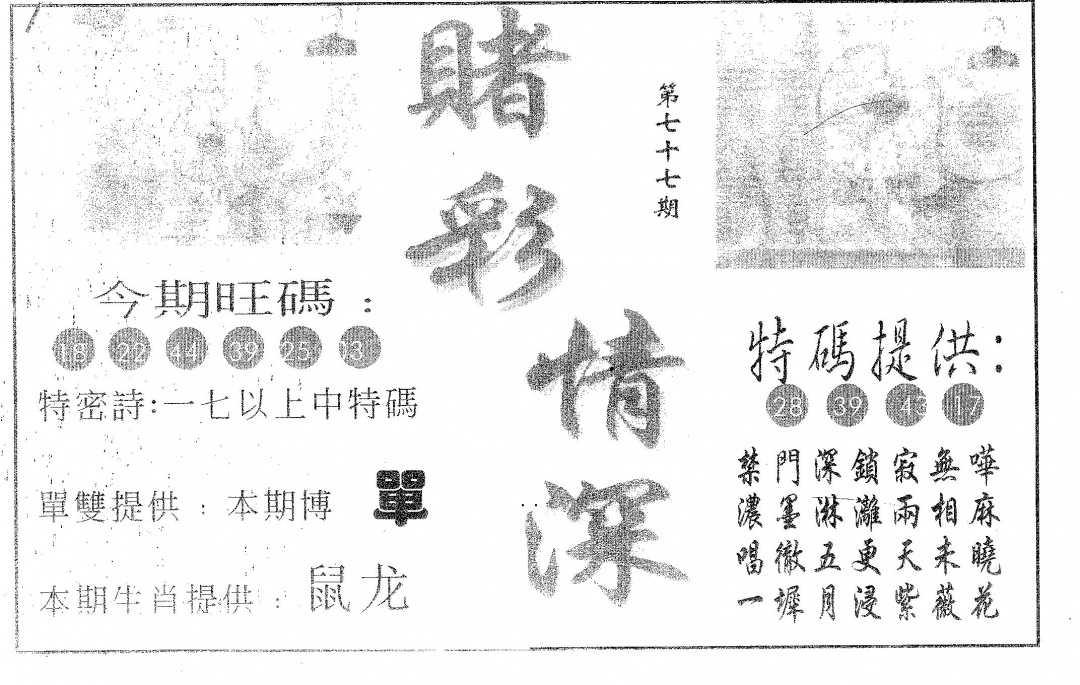 賭彩情深
第七十七期
今期旺碼：
18 22 44 39 25 13
特密詩:一七以上中特碼
單雙提供：本期博 單
本期生肖提供：鼠龙
特碼提供：
28 39 43 17
禁門深鎖寂無嘩
濃墨淋灕兩相麻
唱徹五更天未曉
一墀月浸紫薇花